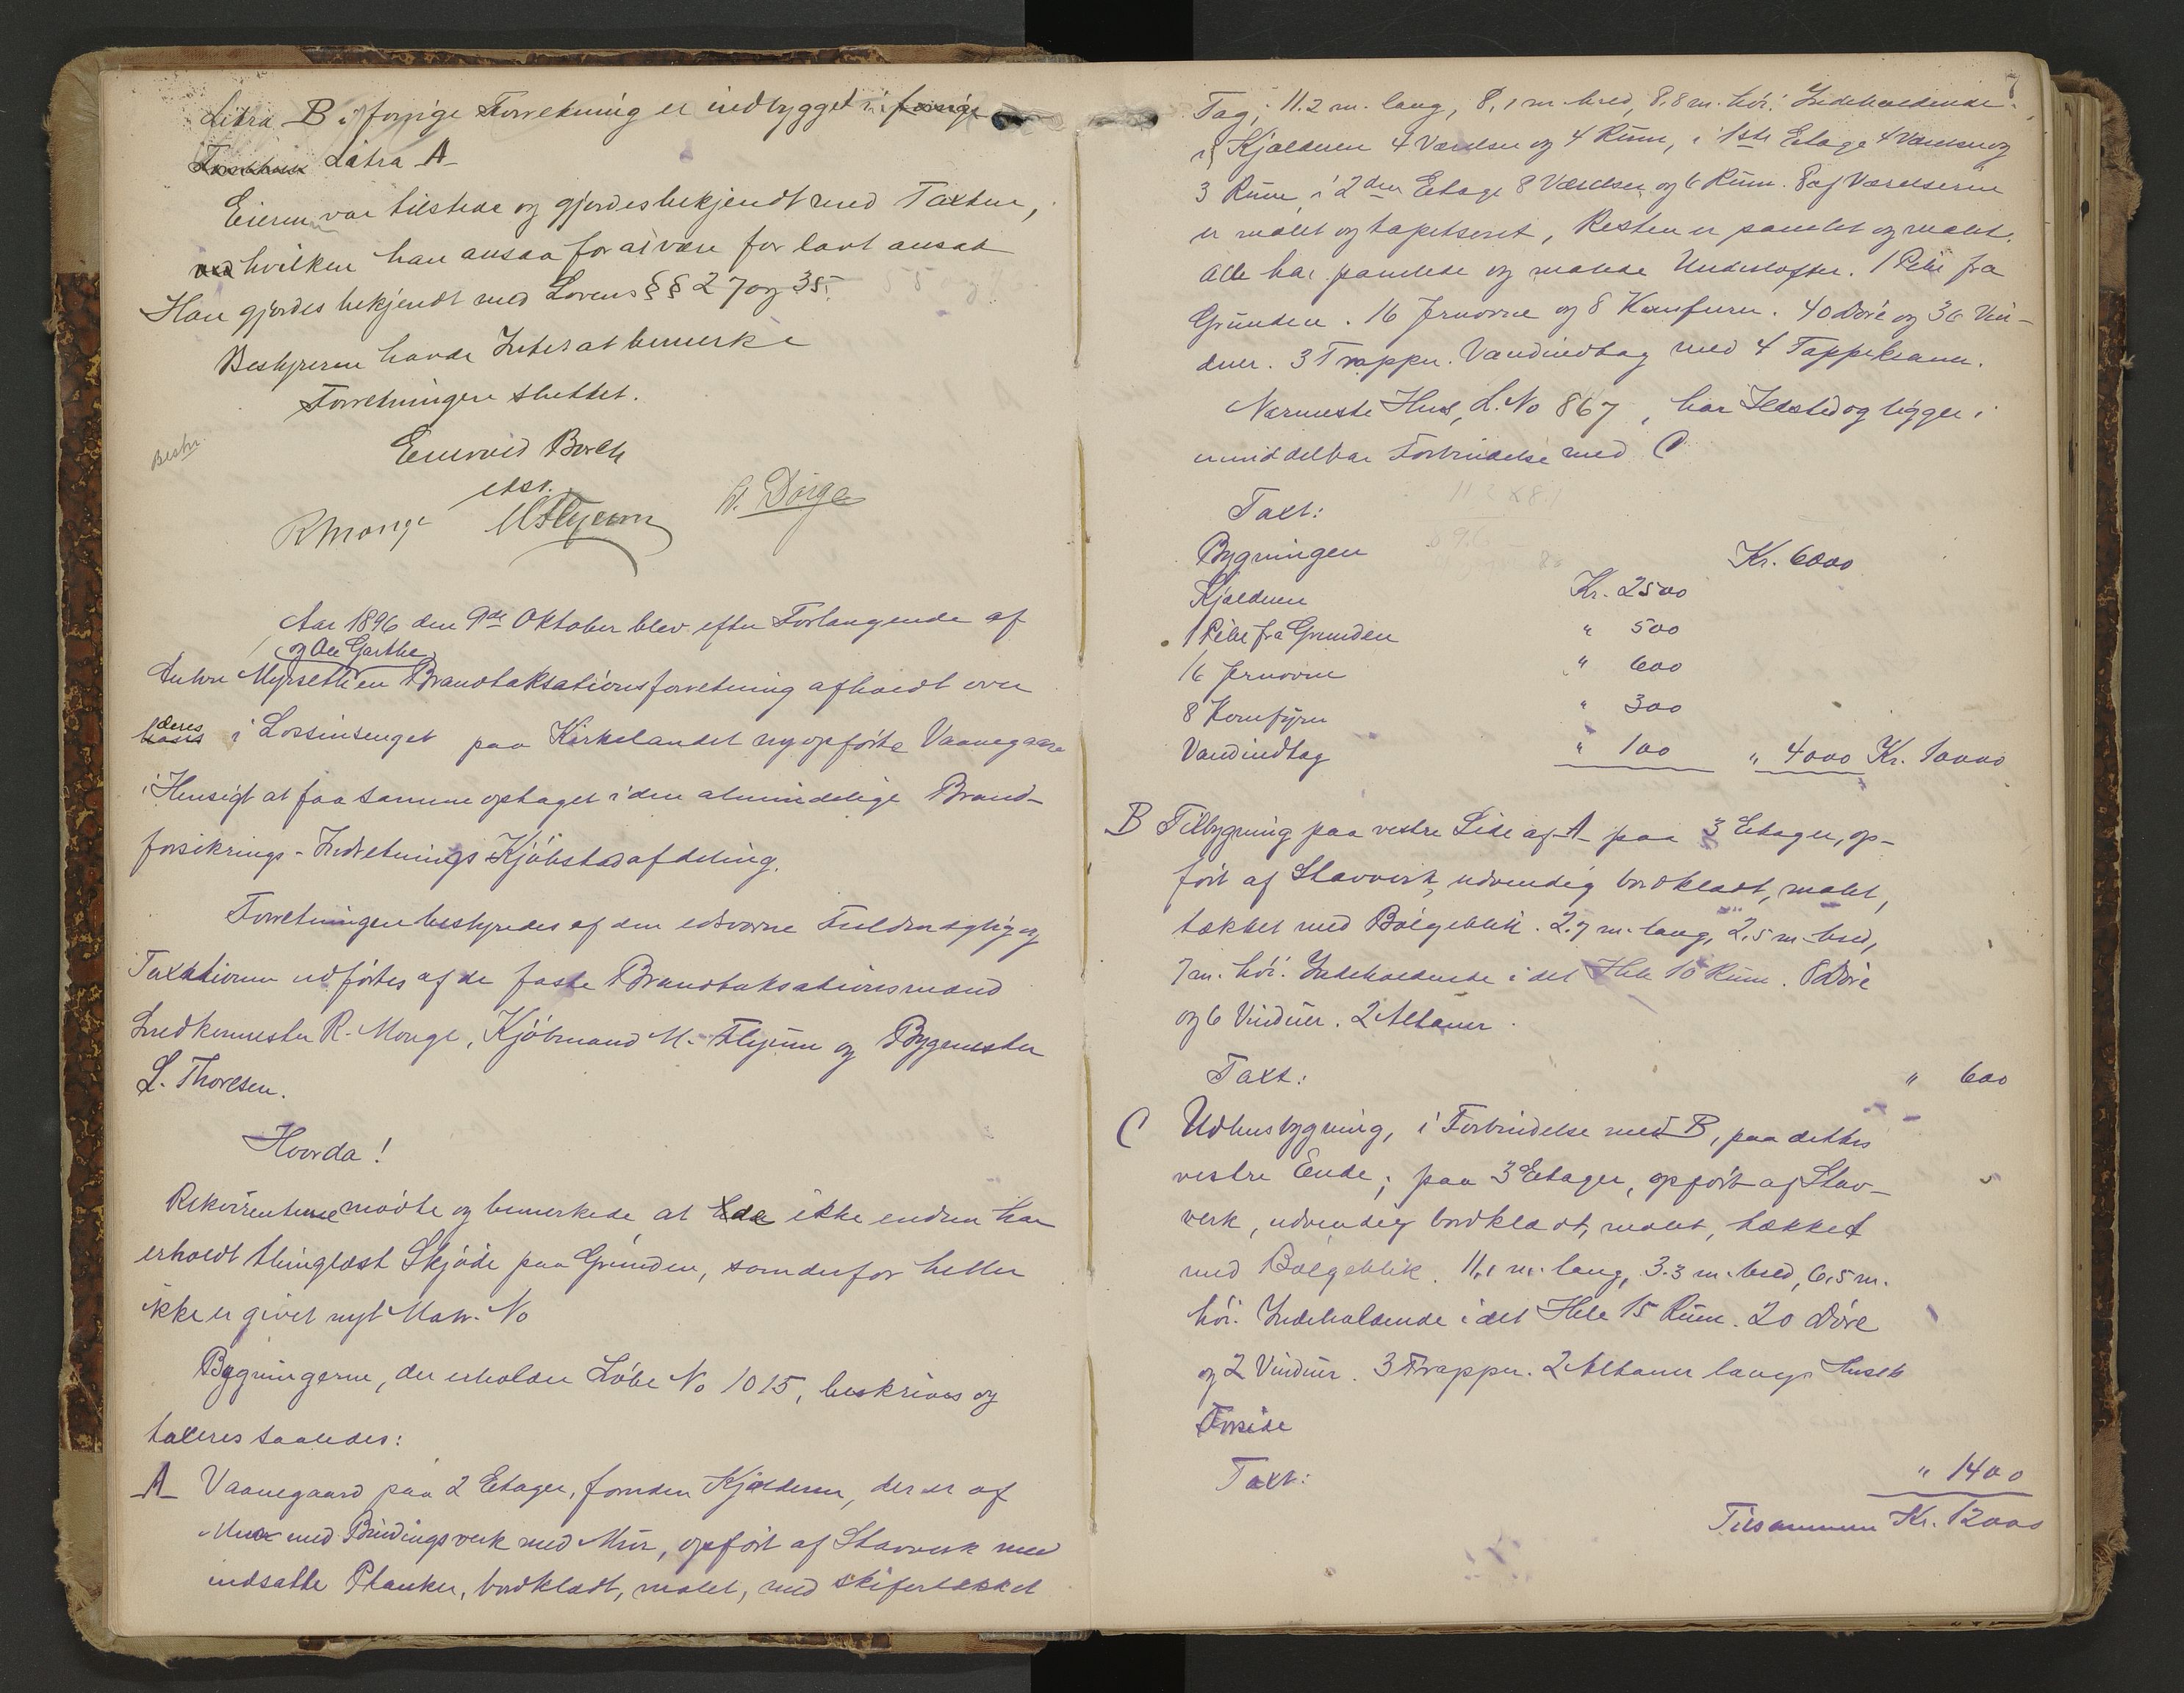 Litra B i forrige Forretning er indbygget i forrige
Forretning Litra A
Eieren var tilstede og gjordes bekjendt med Taxten,
med hvilken han ansaa for at være for lavt ansat
Han gjordes bekjendt med Lovens §§ 27 og 35.
Bestyreren havde Intet at bemerke
Forretningen sluttet.
Bestr.
Borch
edsv.
R Monge M Flyum
Aar 1896 den 9de Oktober blev efter Forlangende af
og Ole Garthe
Anton Myrseth en Brandtaksationsforretning afholdt over
deres
hans i Lossiusenget paa Kirkelandet nyopførte Vaanegaard
i Hensigt at faa samme optaget i den almindelige Brand-
forsikrings-Indretnings Kjøbstadafdeling.
Forretningen bestyredes af den edsvorne Fuldmægtig og
Taxationen udførtes af de faste Brandtaksationsmænd
Snedkermester R. Monge, Kjøbmand M. Flyum og Bygmester
L. Thoresen.
Hvorda!
Rekvirenterne mødte og bemerkede at de ikke endnu har
erholdt thinglæst Skjøde paa Grunden, som derfor heller
ikke er givet nyt Matr. No
Bygningerne, der erholder Løbe No 1015, beskrives og
taxeres saaledes:
A Vaanegaard paa 2 Etager, foruden Kjælderen, der er af
Mur med Bindingsverk med Mur, opført af Stavverk med
indsatte Planker, bordklædt, malet, med skifertækket
7
Tag; 11.2 m. lang, 8,1 m. bred, 8,8 m. høi. Indeholdende
i Kjælderen 4 Værelser og 4 Rum, i 1ste Etage 4 Værelser og
3 Rum, i 2den Etage 8 Værelser og 6 Rum. 8 af Værelserne
er malet og tapetseret, Resten er panelet og malet.
Alle har panelede og malede Underlofter. 1 Pibe fra
Grunden. 16 Jernovne og 8 Komfurer. 40 Døre og 36 Vin-
duer. 3 Trapper. Vandindtag med 4 Tappekraner.
Nærmeste Hus, L. No 867, har Ildsted og ligger i
umiddelbar Forbindelse med C
11 2 x 8.1
Taxt:
Bygningen Kr. 6000
Kjælderen Kr. 2500
1 Pibe fra Grunden " 500
16 Jernovne " 600
8 Komfyrer " 300
Vandindtag " 100 " 4000 Kr. 10000
B Tilbygning paa vestre Side af A paa 3 Etager, op-
ført af Stavverk, udvendig bordklædt, malet,
tækket med Bølgeblik. 2.7 m. lang, 2,5 m. bred,
7 m. høi. Indeholdende i det Hele 10 Rum. 8 Døre
og 6 Vinduer. 2 Altaner.
Taxt: " 600
C Udhusbygning, i Forbindelse med B, paa dettes
vestre Ende; paa 3 Etager, opført af Stav-
verk, udvendig bordklædt, malet, tækket
med Bølgeblik. 11,1 m. lang, 3.3 m. bred, 6,5 m.
høi. Indeholdende i det Hele 15 Rum. 20 Døre
og 2 Vinduer. 3 Trapper. 2 Altaner langs Husets
Forside
Taxt: " 1400
Tilsammen Kr. 12000